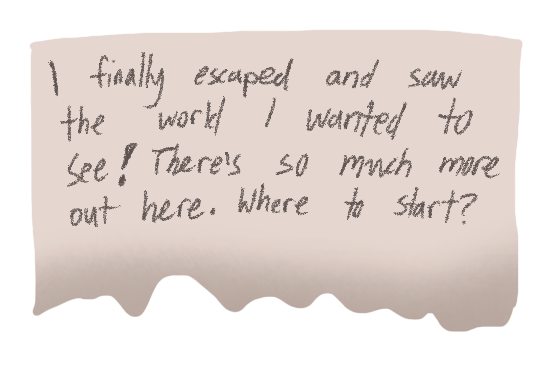 I finally escaped and saw
the world I wanted to
see! There's so much more
out here. Where to start?